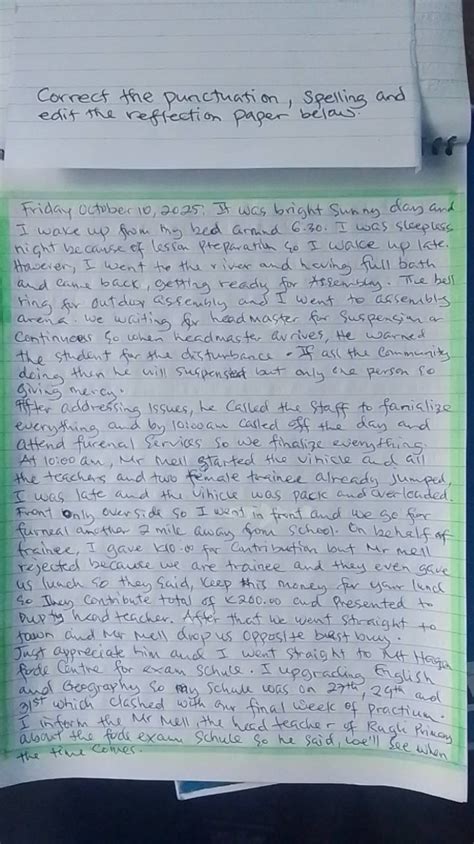 Correct the punctuation, spelling and
edit the reflection paper below.
Friday October 10, 2025: It was bright sunny day and
I wake up from my bed around 6:30. I was sleepless
night because of lesson preparation so I wake up late.
However, I went to the river and having full bath
and came back, getting ready for Assembly. The bell
ring for outdoor assembly and I went to assembly
arena. We waiting for headmaster for suspension or
continuous so when headmaster arrives, He warned
the student for the disturbance. If all the community
doing then he will suspended but only one person so
giving mercy.
After addressing Issues, he called the staff to
everything and by 10:00am called off the day and
attend furenal services so we finalize everything.
At 10:00 am, Mr Mell started the vihicle and all
the teachers and two female trainee already jumped,
I was late and the vihicle was pack and overloaded.
Front only overside so I went in front and we go for
furneal another 2 mile away from school. On behalf of
trainee, I gave k10.00 for contribution but Mr mell
rejected because we are trainee and they even gave
us lunch so they said, keep this money for your lund
So They contribute total of K200.00 and presented to
Duputy head teacher. After that we went straight to
town and Mr Mell drop us opposite best buy.
Just appreciate him and I went straight to Mt Hagen
fode Centre for exam schule. I upgrading English
and Geography so my schule was on 27th, 29th and
31st which clashed with our final week of practium.
I inform the Mr Mell, the head teacher of Rugli Primary
about the fode exam schule so he said, we'll see when
the time comes.